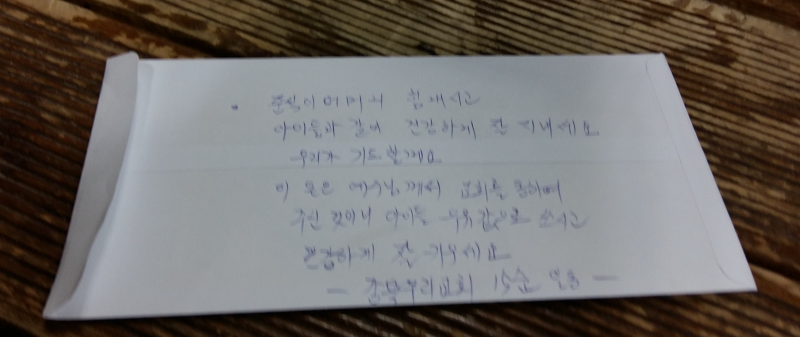 준식이 어머니 힘내시고
아이들과 같이 건강하게 잘 지내세요
우리가 기도할께요
이 돈은 예수님께서 교회를 통하여
주신 것이니 아이들 우유값으로 쓰시고
건강하게 잘 키우세요
- 강북우리교회 15순 일동 -